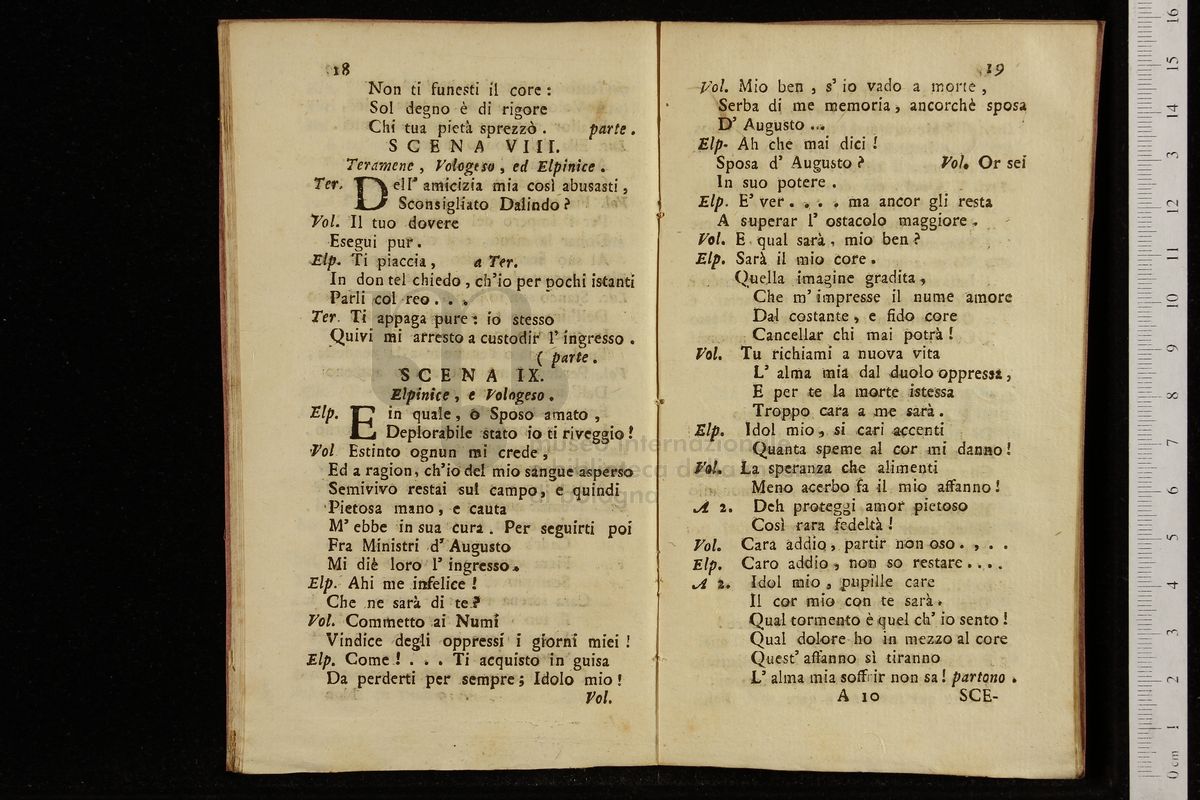 18
Non ti funesti il core :
Sol degno è di rigore
Chi tua pietà sprezzò . parte .
SCENA VIII.
Teramene , Vologeso , ed Elpinice .
Ter. Dell' amicizia mia così abusasti ,
Sconsigliato Dalindo ?
Vol. Il tuo dovere
Esegui pur .
Elp. Ti piaccia , a Ter.
In don tel chiedo , ch'io per pochi istanti
Parli col reo . . .
Ter. Ti appaga pure : io stesso
Quivi mi arresto a custodir l' ingresso .
( parte .
SCENA IX.
Elpinice , e Vologeso .
Elp. E in quale , o Sposo amato ,
Deplorabile stato io ti riveggio !
Vol Estinto ognun mi crede ,
Ed a ragion, ch'io del mio sangue asperso
Semivivo restai sul campo, e quindi
Pietosa mano , e cauta
M' ebbe in sua cura . Per seguirti poi
Fra Ministri d' Augusto
Mi diè loro l' ingresso .
Elp. Ahi me infelice !
Che ne sarà di te ?
Vol. Commetto ai Numi
Vindice degli oppressi i giorni miei !
Elp. Come ! . . . Ti acquisto in guisa
Da perderti per sempre ; Idolo mio !
Vol.
19
Vol. Mio ben , s' io vado a morte ,
Serba di me memoria , ancorchè sposa
D' Augusto ...
Elp. Ah che mai dici !
Sposa d' Augusto ? Vol. Or sei
In suo potere .
Elp. E' ver . . . . ma ancor gli resta
A superar l' ostacolo maggiore .
Vol. E qual sarà , mio ben ?
Elp. Sarà il mio core .
Quella imagine gradita ,
Che m' impresse il nume amore
Dal costante , e fido core
Cancellar chi mai potrà !
Vol. Tu richiami a nuova vita
L' alma mia dal duolo oppressa ,
E per te la morte istessa
Troppo cara a me sarà .
Elp. Idol mio , si cari accenti
Quanta speme al cor mi danno !
Vol. La speranza che alimenti
Meno acerbo fa il mio affanno !
A 2. Deh proteggi amor pietoso
Così rara fedeltà !
Vol. Cara addio , partir non oso . , . .
Elp. Caro addio , non so restare ....
A 2. Idol mio , pupille care
Il cor mio con te sarà .
Qual tormento è quel ch' io sento !
Qual dolore ho in mezzo al core
Quest' affanno sì tiranno
L' alma mia soffrir non sa ! partono .
A 10 SCE-
museo internazionale
biblioteca della musica
di bologna
0 cm 1 2 3 4 5 6 7 8 9 10 11 12 13 14 15 16